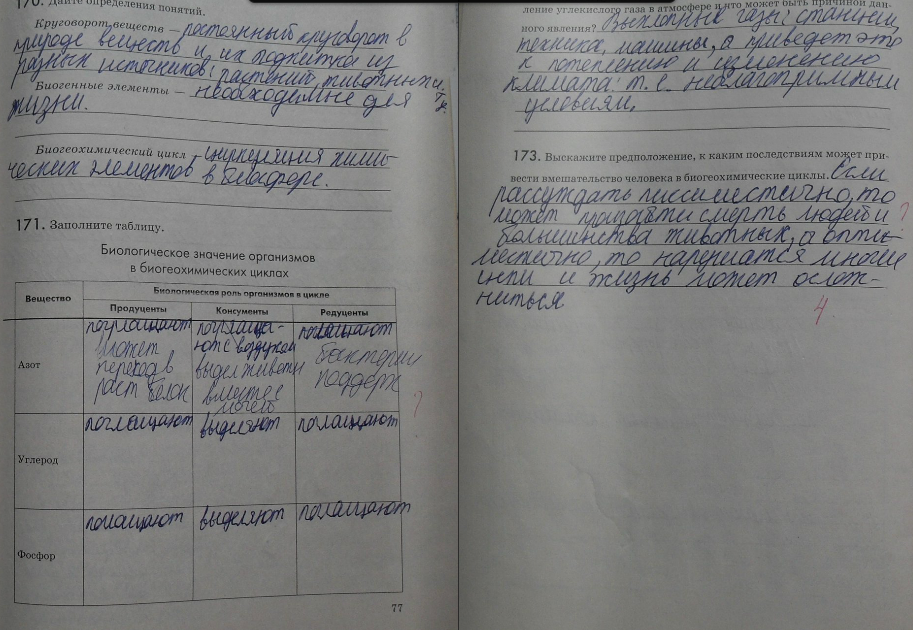 170. Дайте определения понятий.
Круговорот веществ — постоянный круговорот в
природе веществ и их подпитка из
разных источников: растений, животных и
Биогенные элементы — необходимые для
жизни.
Биогеохимический цикл — циркуляция хими-
ческих элементов в биосфере.
171. Заполните таблицу.
Биологическое значение организмов
в биогеохимических циклах
Вещество
Биологическая роль организмов в цикле
Продуценты
Консументы
Редуценты
Азот
поглощают
может
переход в
раст белок
поглаща-
ют с воздухом
выдел животн
вместе с
мочой
поглощают
бактерии
поддерж
?
Углерод
поглащают
выделяют
поглащают
Фосфор
поглащают
выделяют
поглащают
77
ление углекислого газа в атмосфере и что может быть причиной дан-
ного явления? Выхлопные газы: станции,
техника, машины, а приведет это
к потеплению и изменению
климата. т. е. неблагоприятным
условиям,
173. Выскажите предположение, к каким последствиям может при-
вести вмешательство человека в биогеохимические циклы. Если
рассуждать писсиместично, то
может произойти смерть людей и
большинства животных, а опти-
местично, то нарушатся многие
и жизнь может ослож-
ниться
?
4